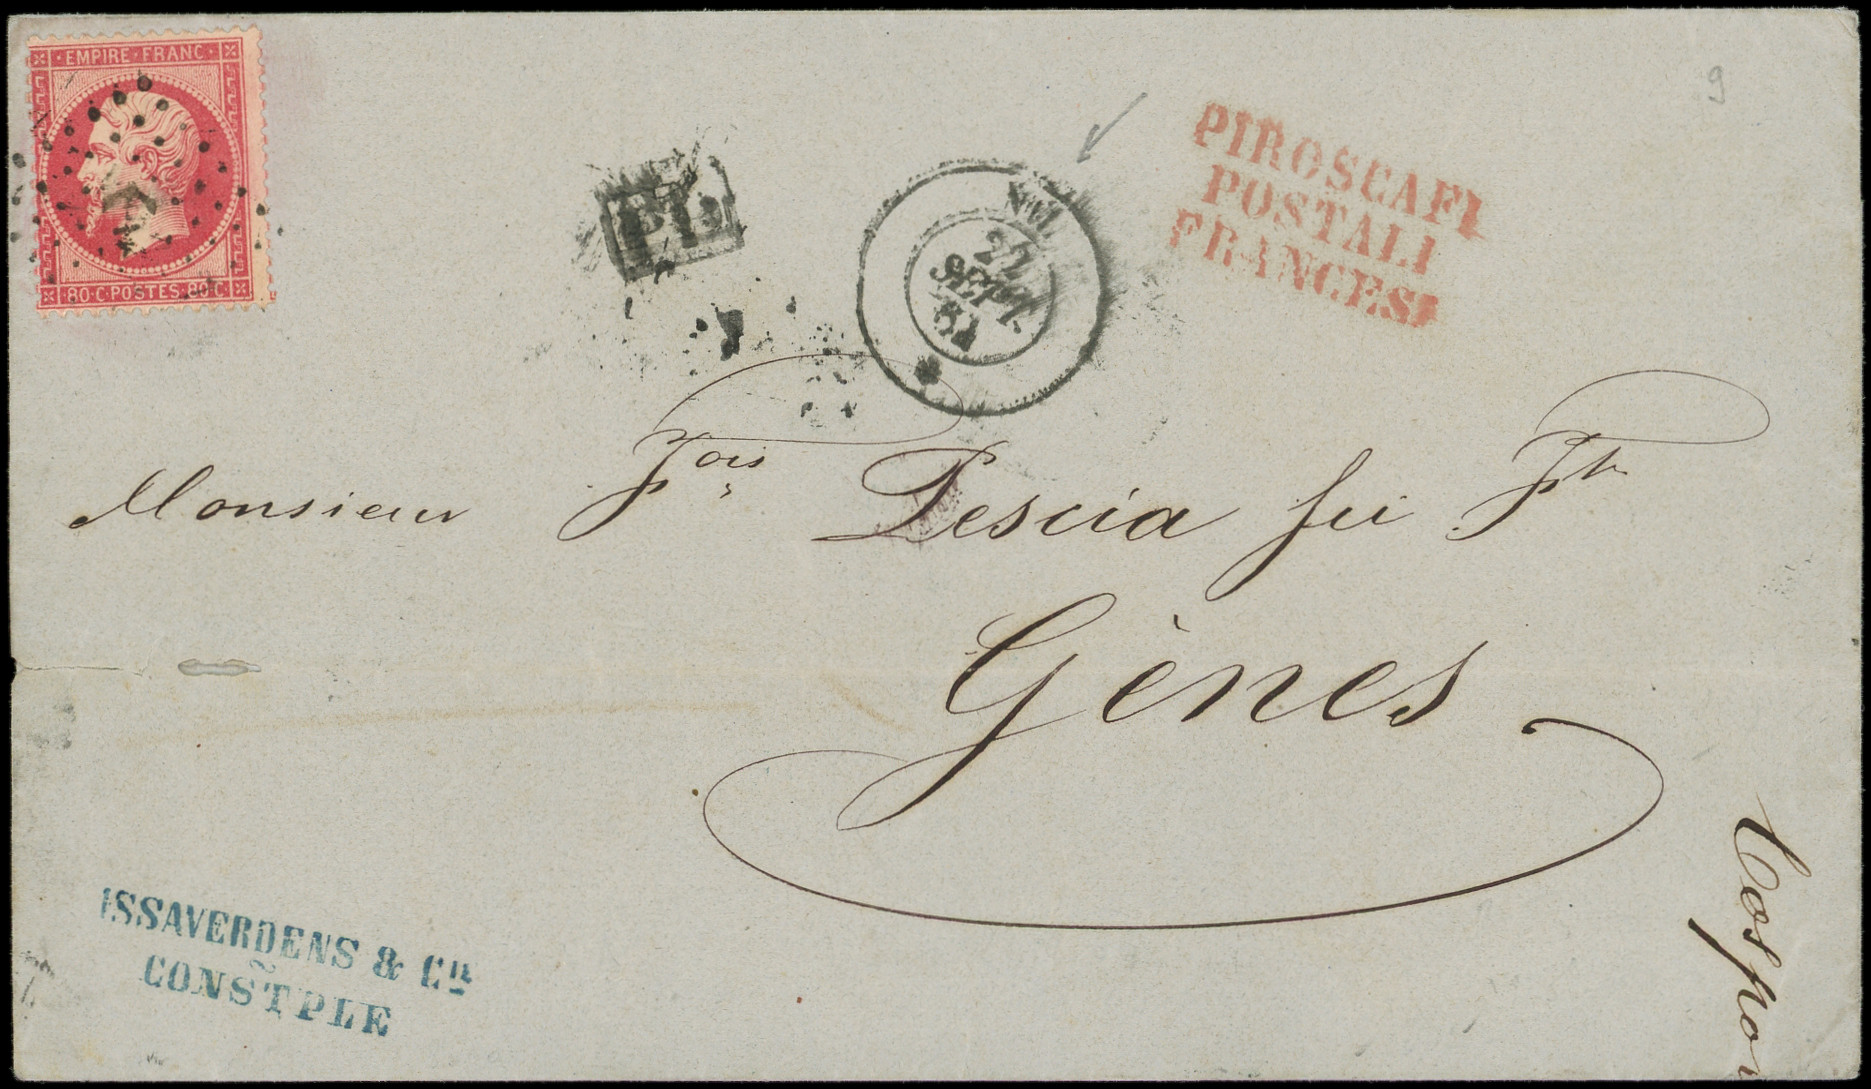 EMPIRE · FRANC
80·C·POSTES·80·C
PD
22
SEPT.
64
PIROSCAFI
POSTALI
FRANCESI
9
Monsieur Fois Pescia fu Fco
Gènes
ISSAVERDENS & Cie
CONSTPLE